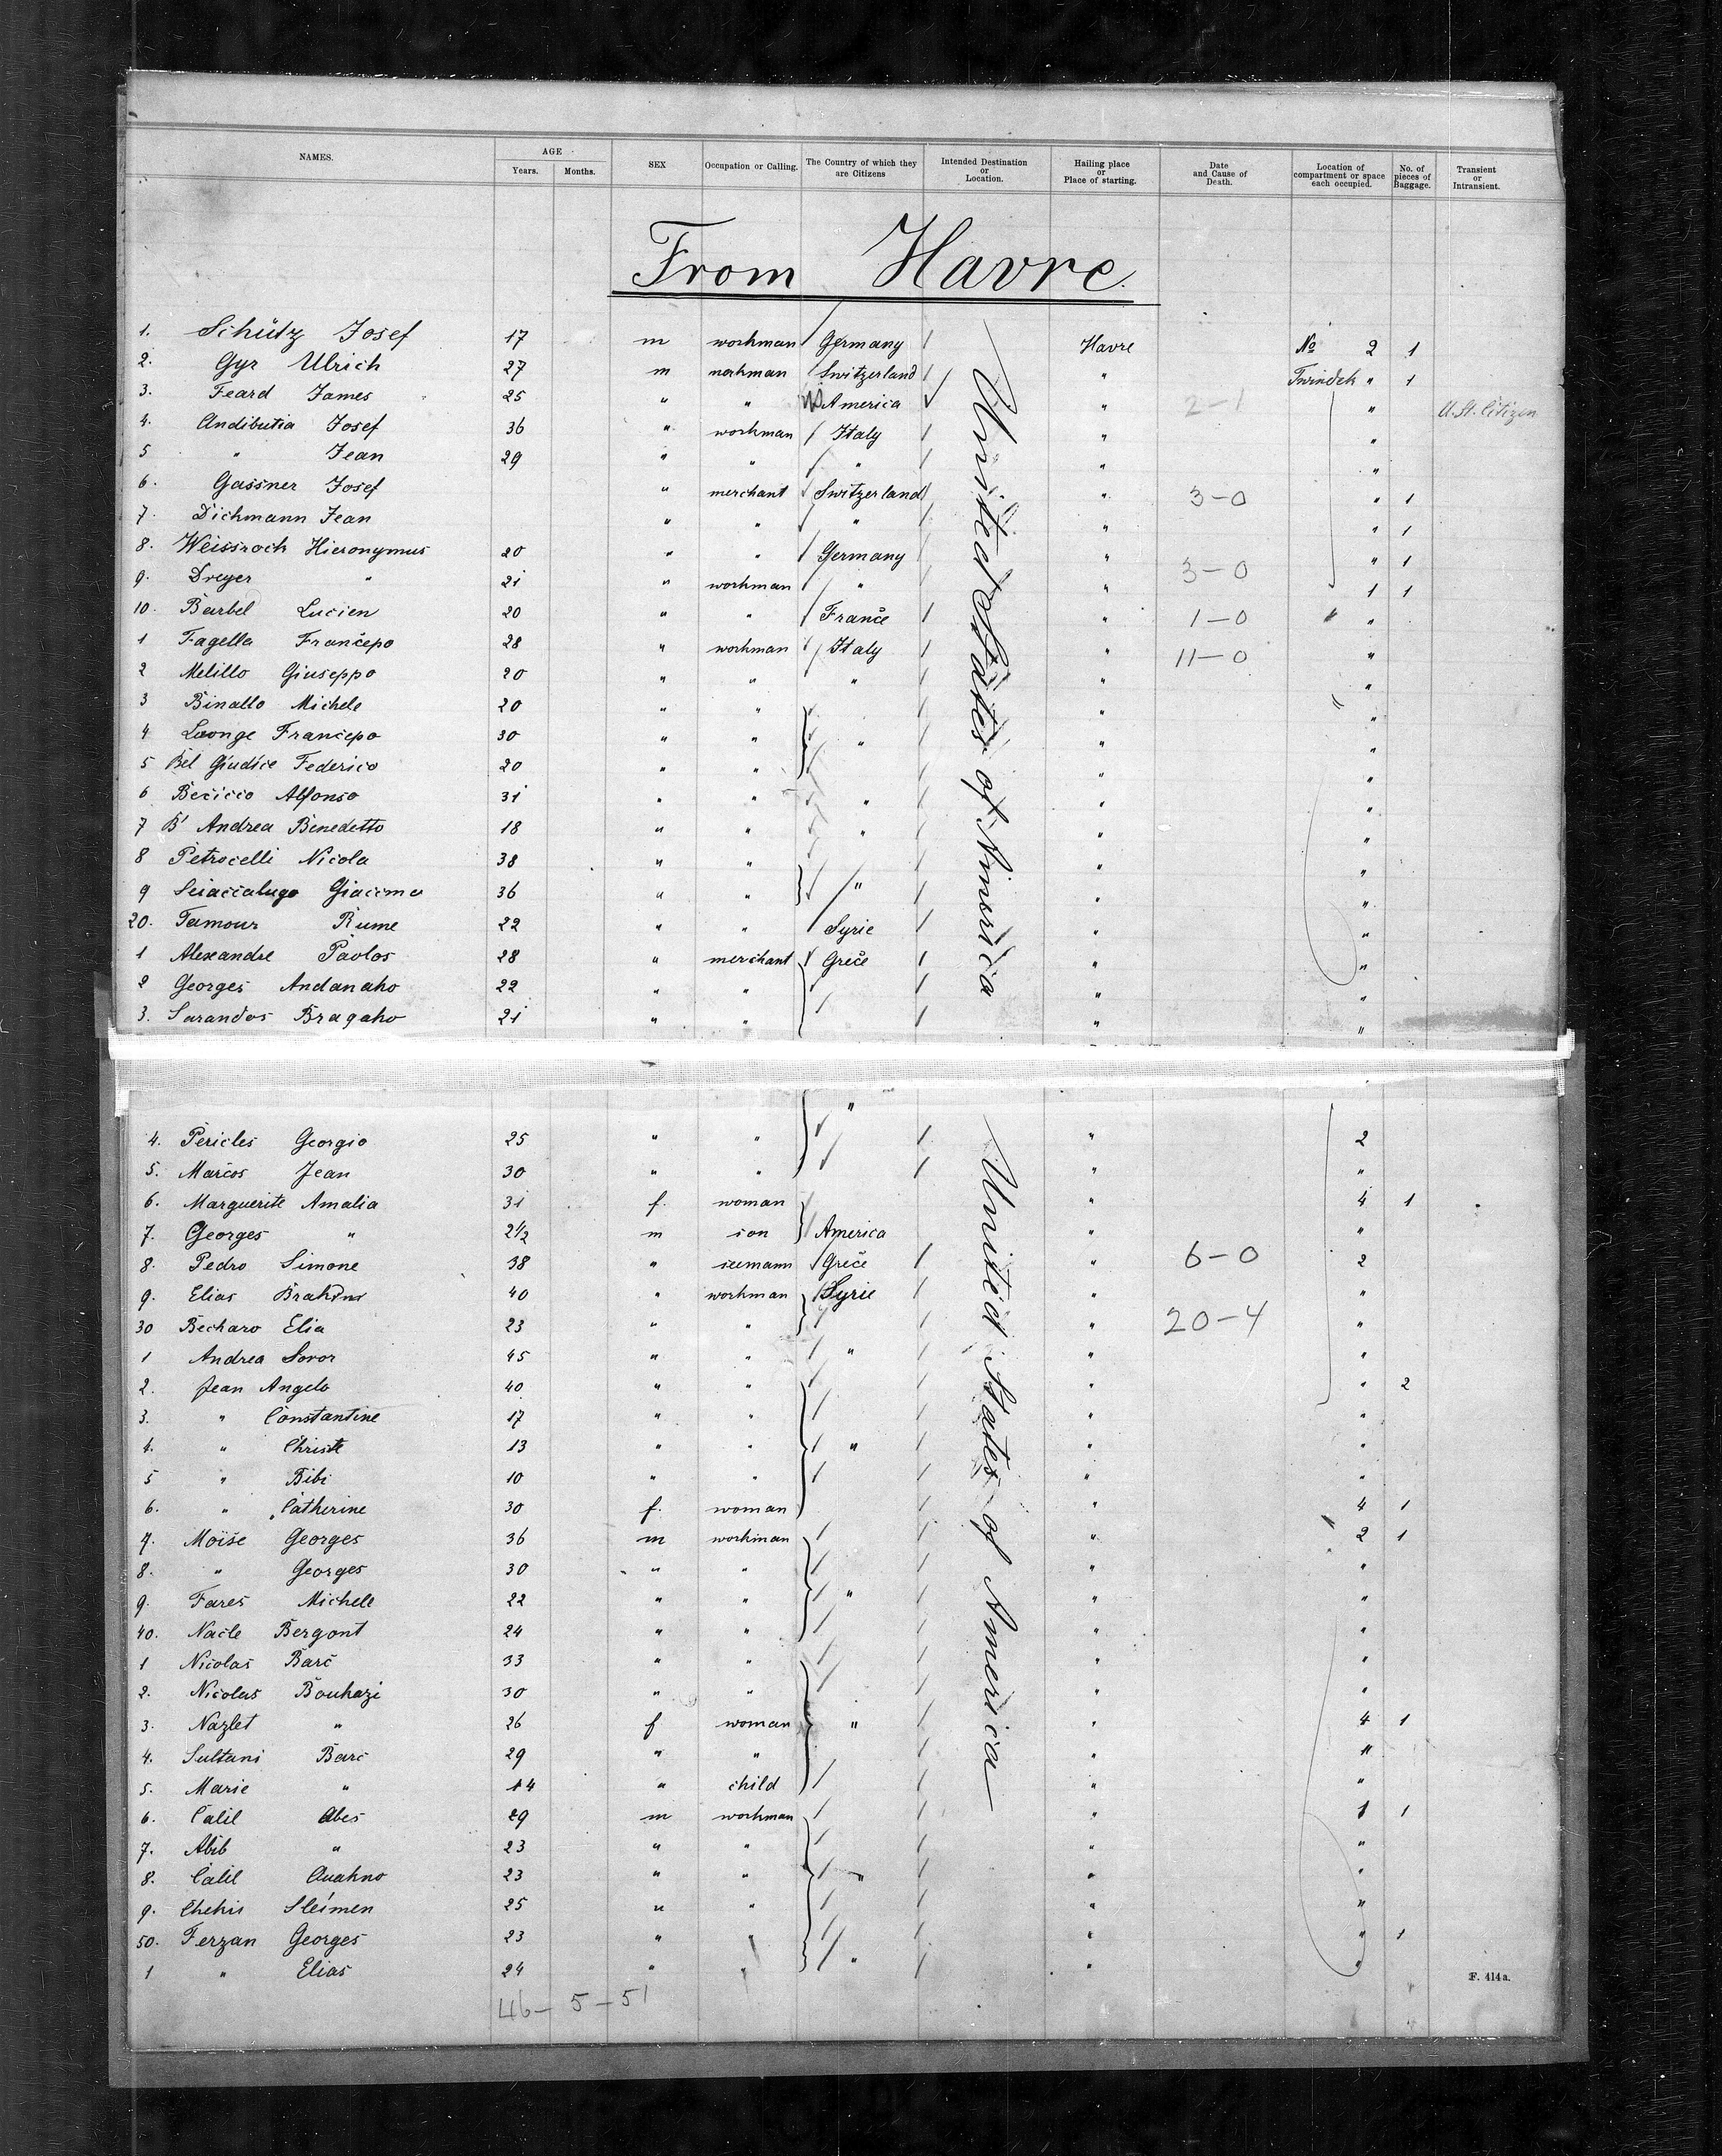 NAMES. AGE Years. Months. SEX Occupation or Calling. The Country of which they are Citizens Intended Destination or Location. Hailing place or Place of starting. Date and Cause of Death. Location of compartment or space each occupied. No. of pieces of Baggage. Transient or Intransient.
From Havre.
1. Schütz Josef 17 m workman Germany Havre No 2 1
2. Gyr Ulrich 27 m workman Switzerland " Twindek " 1
3. Feard James 25 " " America " 2-1 " U.St. Citizen
4. Andibutia Josef 36 " workman Italy " "
5 " Jean 29 " " " " "
6. Gassner Josef " merchant Switzerland " 3-0 " 1
7. Dichmann Jean " " " " " 1
8. Weissroch Hieronymus 20 " " Germany " " 1
9. Dreyer " 21 " workman " " 3-0 1 1
10. Barbel Lucien 20 " " France " 1-0 "
1 Fagella Francepo 28 " workman Italy " 11-0 "
2 Melillo Giuseppo 20 " " " " "
3 Binallo Michele 20 " " " "
4 Luonge Francepo 30 " " " " "
5 Del Giudice Federico 20 " " " "
6 Becicco Alfonso 31 " " " " "
7 D' Andrea Benedetto 18 " " " " "
8 Petrocelli Nicola 38 " " " "
9 Sciaccaluga Giacomo 36 " " " " "
20. Tamour Rume 22 " " Syrie " "
1 Alexandre Pavlos 28 " merchant Grece " "
2 Georges Andanaho 22 " " " "
3. Sarandos Bragaho 21 " " " "
United States of America
"
4. Pericles Georgio 25 " " " 2
5. Marcos Jean 30 " " " "
6. Marguerite Amalia 31 f. woman " 4 1
7. Georges " 2 1/2 m son America " "
8. Pedro Simone 38 " seemann Grece " 6-0 2
9. Elias Brahim 40 " workman Syrie " "
30 Becharo Elia 23 " " " 20-4 "
1 Andrea Soror 45 " " " " "
2. Jean Angelo 40 " " " " 2
3. " Constantine 17 " " " "
4. " Christe 13 " " " " "
5 " Bibi 10 " " " "
6. " Catherine 30 f. woman " 4 1
7. Moïse Georges 36 m workman " 2 1
8. " Georges 30 " " " "
9. Fares Michele 22 " " " " "
40. Nacle Bergont 24 " " " "
1 Nicolas Barc 33 " " " "
2. Nicolas Bouhazi 30 " " " "
3. Nazlet " 26 f woman " " 4 1
4. Sultani Barc 29 " " " "
5. Marie " 14 " child " "
6. Calil Abes 29 m workman " 1 1
7. Abib " 23 " " " "
8. Calil Auahno 23 " " " " "
9. Chehir Sleimen 25 " " " "
50. Ferzan Georges 23 " " " " 1
1 " Elias 24 " " " " "
United States of America
46- 5-51
F. 414a.